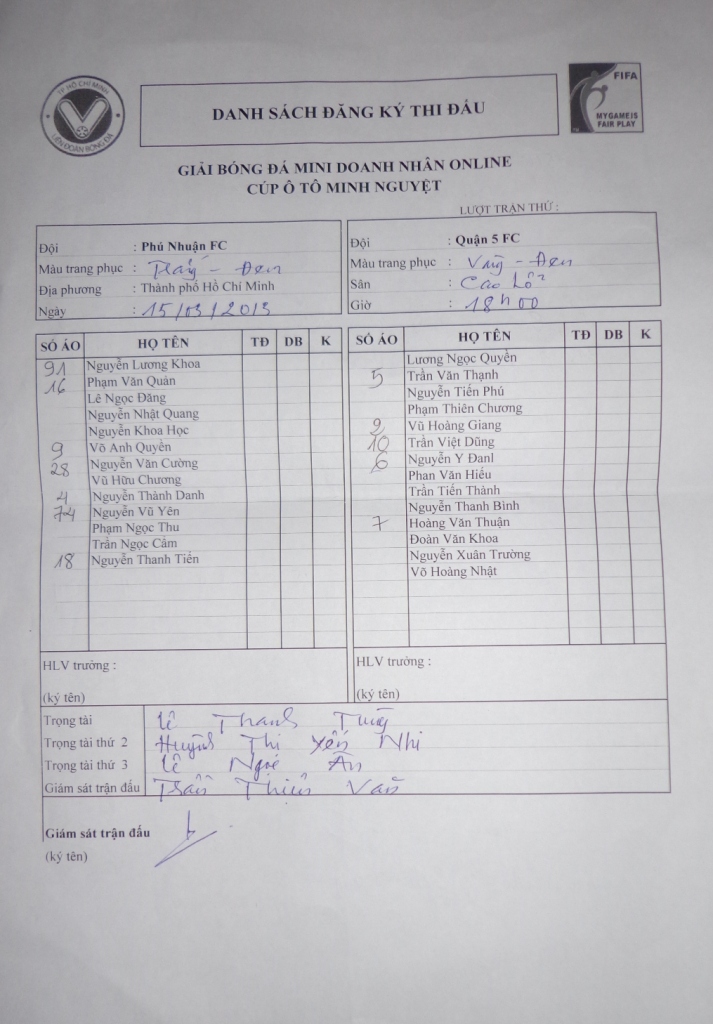 TP HỒ CHÍ MINH
LIÊN ĐOÀN BÓNG ĐÁ
DANH SÁCH ĐĂNG KÝ THI ĐẤU
FIFA
MY GAME IS
FAIR PLAY
GIẢI BÓNG ĐÁ MINI DOANH NHÂN ONLINE
CÚP Ô TÔ MINH NGUYỆT
LƯỢT TRẬN THỨ :
Đội : Phú Nhuận FC
Màu trang phục : Trắng - Đen
Địa phương : Thành phố Hồ Chí Minh
Ngày : 15/03/2013
Đội : Quận 5 FC
Màu trang phục : Vàng - Đen
Sân : Cao Lỗ
Giờ : 18h00
SỐ ÁO HỌ TÊN TĐ DB K
91 Nguyễn Lương Khoa
16 Phạm Văn Quản
Lê Ngọc Đăng
Nguyễn Nhật Quang
Nguyễn Khoa Học
9 Võ Anh Quyền
28 Nguyễn Văn Cường
Vũ Hữu Chương
4 Nguyễn Thành Danh
74 Nguyễn Vũ Yên
Phạm Ngọc Thu
Trần Ngọc Cẩm
18 Nguyễn Thanh Tiến
HLV trưởng :
(ký tên)
SỐ ÁO HỌ TÊN TĐ DB K
Lương Ngọc Quyền
5 Trần Văn Thạnh
Nguyễn Tiến Phú
Phạm Thiên Chương
2 Vũ Hoàng Giang
10 Trần Việt Dũng
6 Nguyễn Y Đanl
Phan Văn Hiếu
Trần Tiến Thành
Nguyễn Thanh Bình
7 Hoàng Văn Thuận
Đoàn Văn Khoa
Nguyễn Xuân Trường
Võ Hoàng Nhật
HLV trưởng :
(ký tên)
Trọng tài Lê Thanh Tùng
Trọng tài thứ 2 Huỳnh Thị Yến Nhi
Trọng tài thứ 3 Lê Ngọc Ân
Giám sát trận đấu Trần Thiên Văn
Giám sát trận đấu
(ký tên)